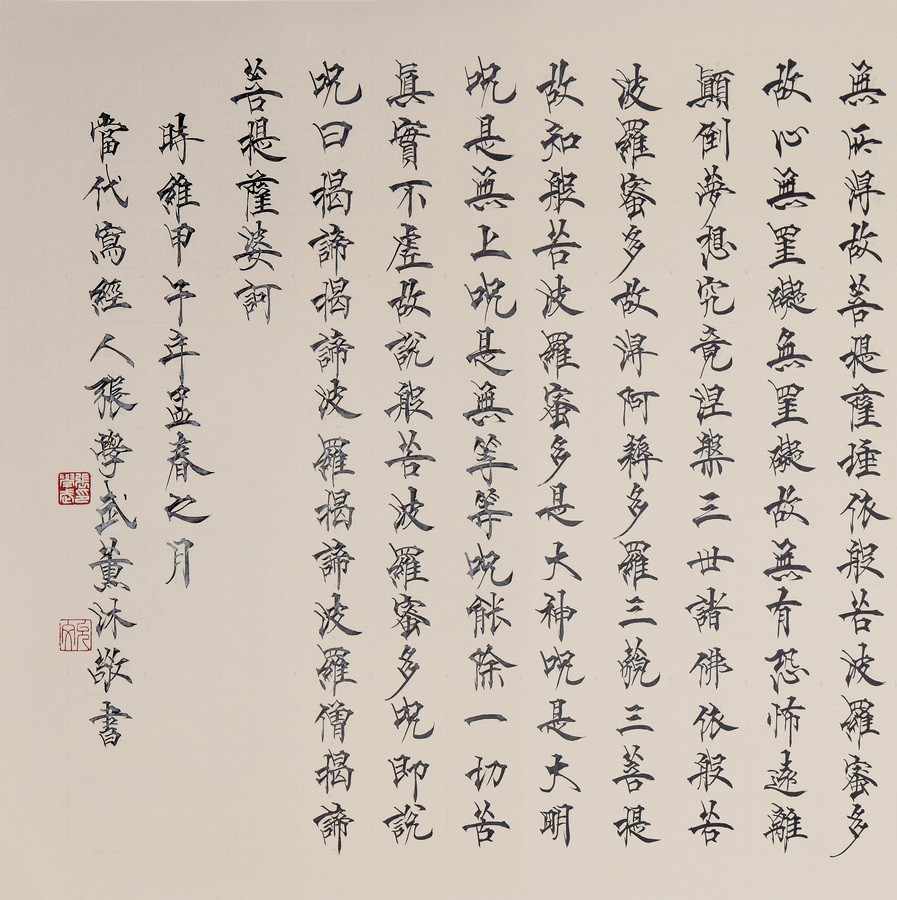 無所得故菩提薩埵依般若波羅蜜多
故心無罣礙無罣礙故無有恐怖遠離
顛倒夢想究竟涅槃三世諸佛依般若
波羅蜜多故得阿耨多羅三藐三菩提
故知般若波羅蜜多是大神呪是大明
呪是無上呪是無等等呪能除一切苦
眞實不虛故說般若波羅蜜多呪即說
呪曰揭諦揭諦波羅揭諦波羅僧揭諦
菩提薩婆訶
時維甲午年孟春之月
當代寫經人張學武薰沐敬書